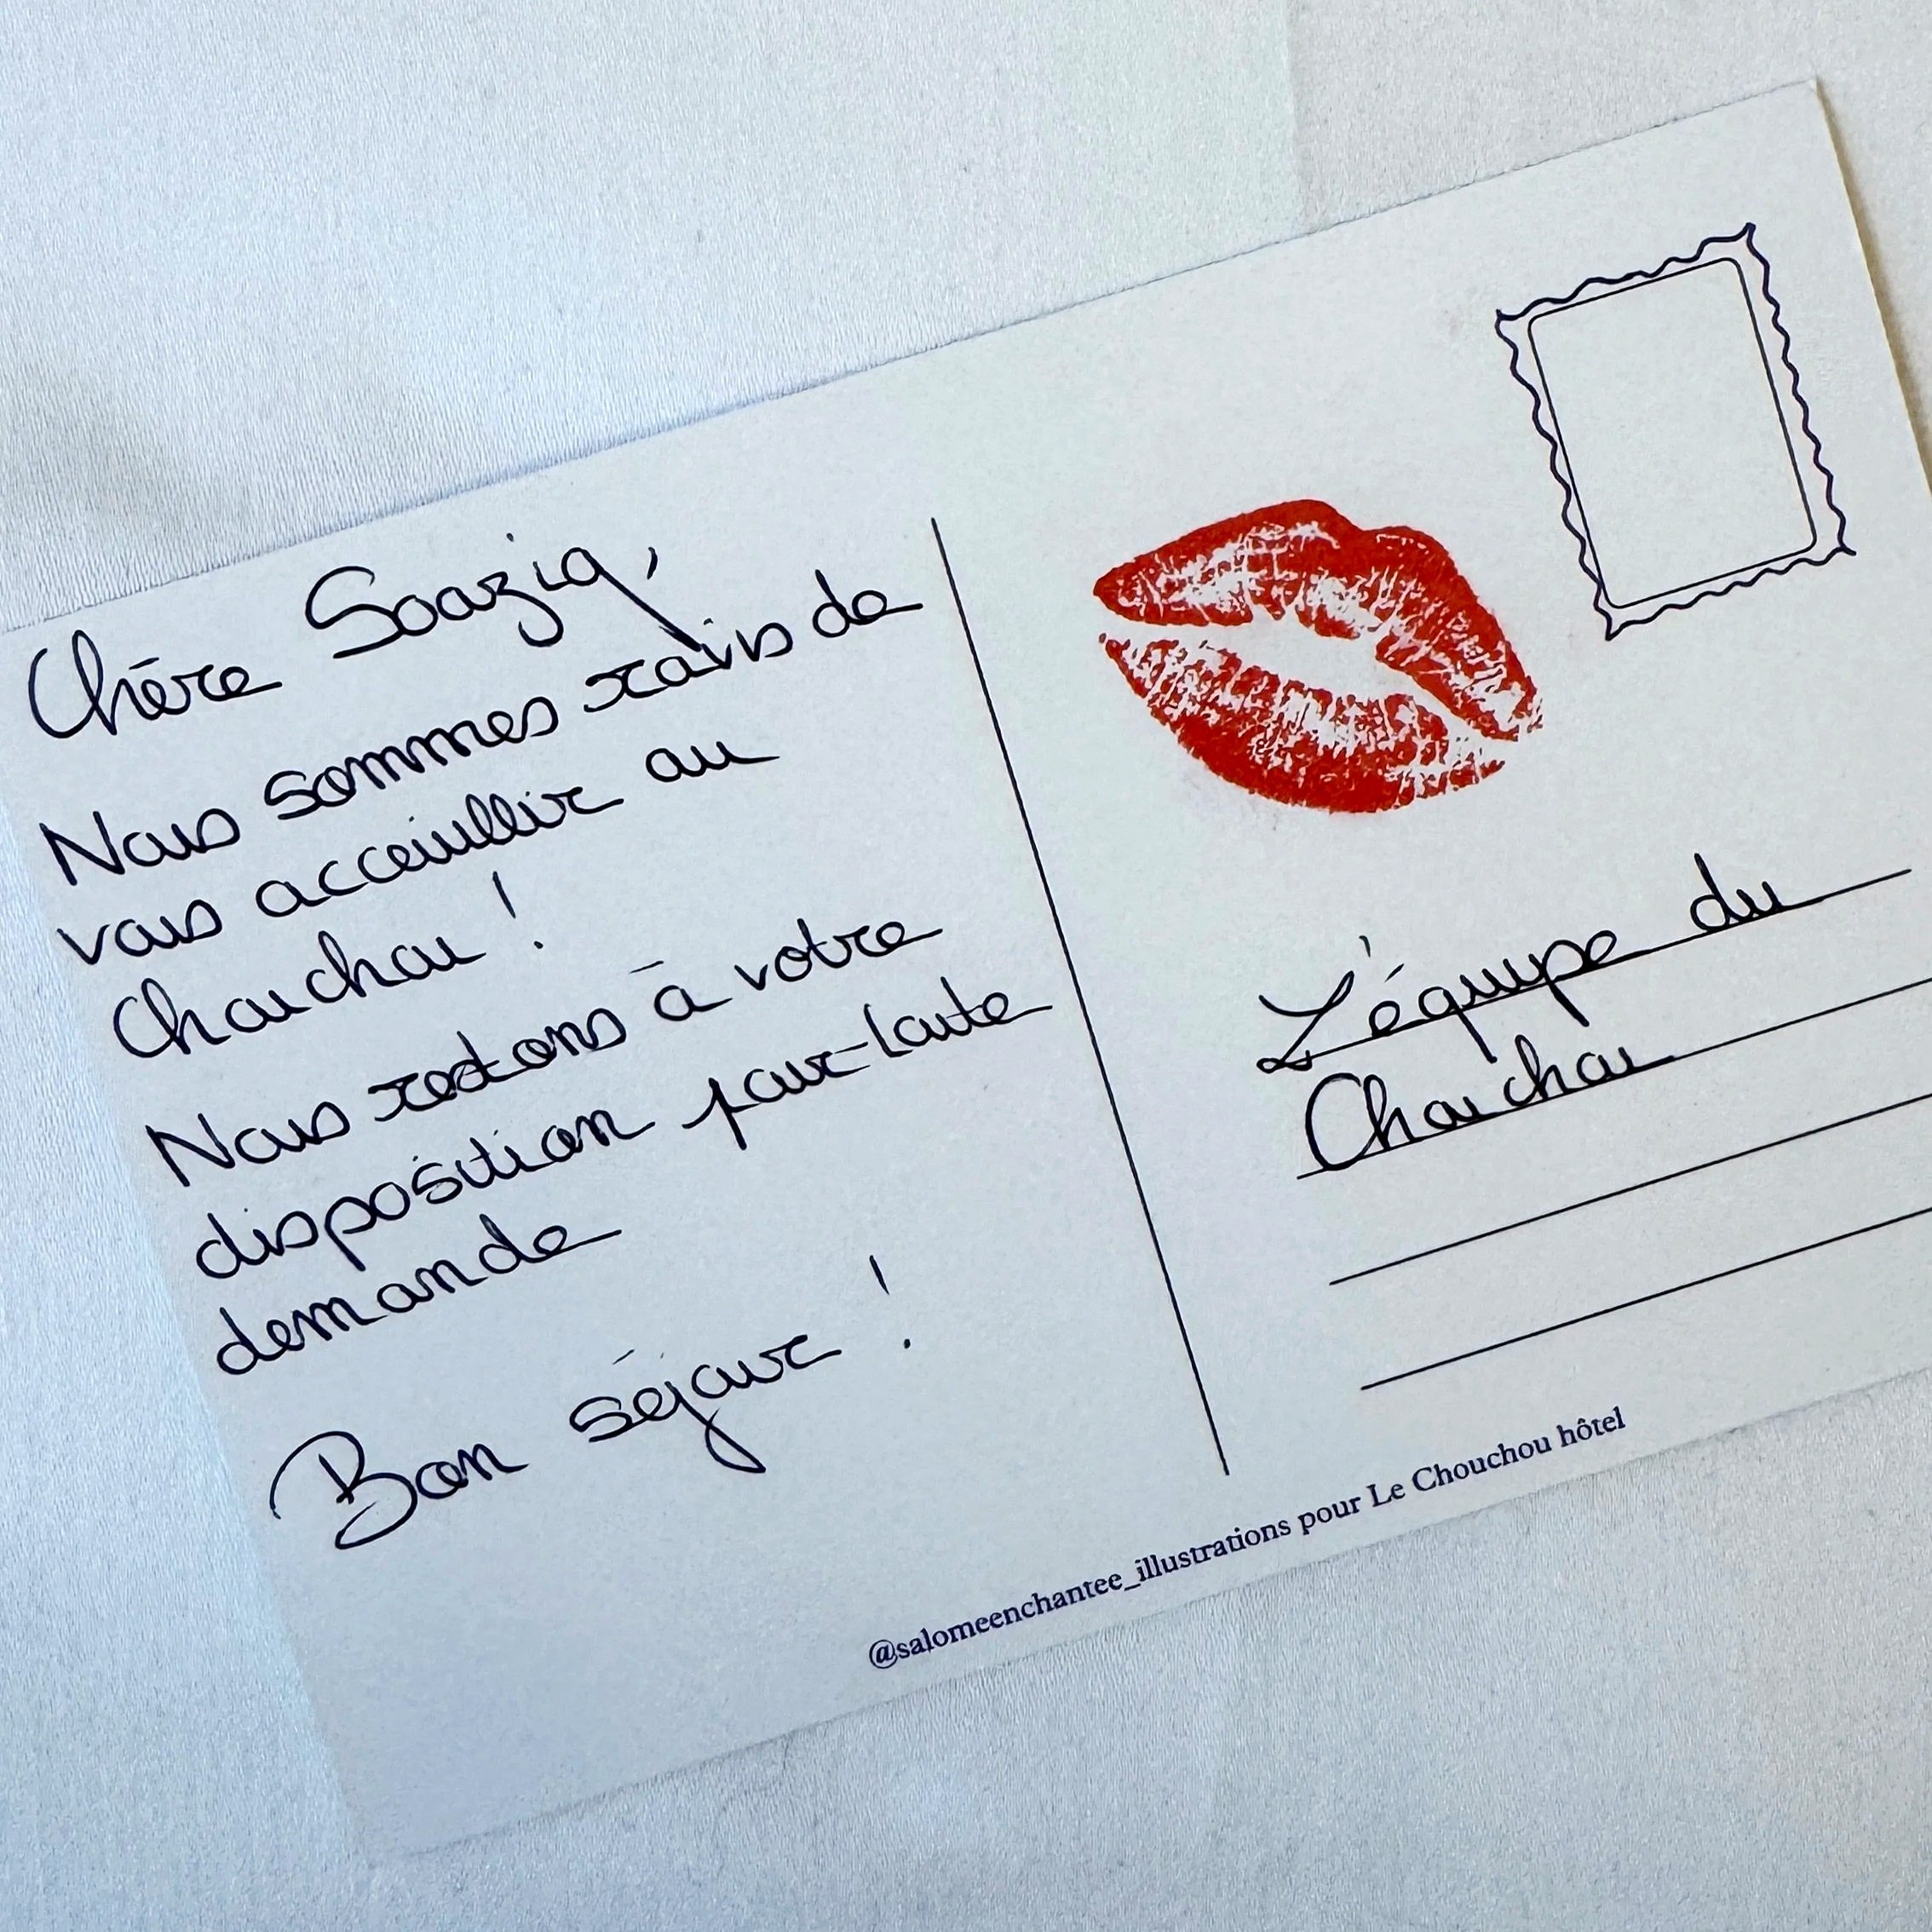 Chère Soazig,
Nous sommes ravis de
vous acceuillir au
Chouchou !
Nous restons à votre
disposition pour toute
demande
Bon séjour !
L'équipe du
Chouchou
@salomeenchantee_illustrations pour Le Chouchou hôtel